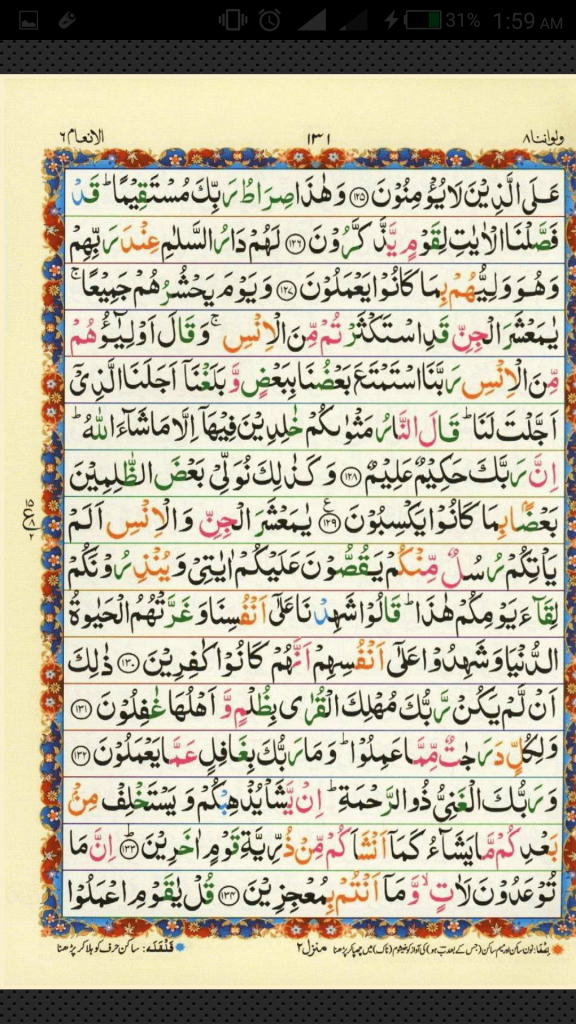 31% 1:59 AM
ولواننا ٨ ١٣١ الانعام ٦
عَلَى الَّذِيْنَ لَا يُؤْمِنُوْنَ ﴿١٢٥﴾ وَهٰذَا صِرَاطُ رَبِّكَ مُسْتَقِيْمًا ؕ قَدْ
فَصَّلْنَا الْاٰيٰتِ لِقَوْمٍ يَّذَّكَّرُوْنَ ﴿١٢٦﴾ لَهُمْ دَارُ السَّلٰمِ عِنْدَ رَبِّهِمْ
وَهُوَ وَلِيُّهُمْ بِمَا كَانُوْا يَعْمَلُوْنَ ﴿١٢٧﴾ وَيَوْمَ يَحْشُرُهُمْ جَمِيْعًا ۚ
يٰمَعْشَرَ الْجِنِّ قَدِ اسْتَكْثَرْتُمْ مِّنَ الْاِنْسِ ۚ وَقَالَ اَوْلِيٰٓؤُهُمْ
مِّنَ الْاِنْسِ رَبَّنَا اسْتَمْتَعَ بَعْضُنَا بِبَعْضٍ وَّبَلَغْنَاۤ اَجَلَنَا الَّذِيْۤ
اَجَّلْتَ لَنَا ؕ قَالَ النَّارُ مَثْوٰىكُمْ خٰلِدِيْنَ فِيْهَاۤ اِلَّا مَا شَآءَ اللّٰهُ ؕ
اِنَّ رَبَّكَ حَكِيْمٌ عَلِيْمٌ ﴿١٢٨﴾ وَكَذٰلِكَ نُوَلِّيْ بَعْضَ الظّٰلِمِيْنَ
بَعْضًۢا بِمَا كَانُوْا يَكْسِبُوْنَ ﴿١٢٩﴾ ع يٰمَعْشَرَ الْجِنِّ وَالْاِنْسِ اَلَمْ
يَاْتِكُمْ رُسُلٌ مِّنْكُمْ يَقُصُّوْنَ عَلَيْكُمْ اٰيٰتِيْ وَيُنْذِرُوْنَكُمْ
لِقَآءَ يَوْمِكُمْ هٰذَا ؕ قَالُوْا شَهِدْنَا عَلٰۤى اَنْفُسِنَا وَغَرَّتْهُمُ الْحَيٰوةُ
الدُّنْيَا وَشَهِدُوْا عَلٰۤى اَنْفُسِهِمْ اَنَّهُمْ كَانُوْا كٰفِرِيْنَ ﴿١٣٠﴾ ذٰلِكَ
اَنْ لَّمْ يَكُنْ رَّبُّكَ مُهْلِكَ الْقُرٰى بِظُلْمٍ وَّاَهْلُهَا غٰفِلُوْنَ ﴿١٣١﴾
وَلِكُلٍّ دَرَجٰتٌ مِّمَّا عَمِلُوْا ؕ وَمَا رَبُّكَ بِغَافِلٍ عَمَّا يَعْمَلُوْنَ ﴿١٣٢﴾
وَرَبُّكَ الْغَنِيُّ ذُو الرَّحْمَةِ ؕ اِنْ يَّشَاْ يُذْهِبْكُمْ وَيَسْتَخْلِفْ مِنْۢ
بَعْدِكُمْ مَّا يَشَآءُ كَمَاۤ اَنْشَاَكُمْ مِّنْ ذُرِّيَّةِ قَوْمٍ اٰخَرِيْنَ ﴿١٣٣﴾ اِنَّ مَا
تُوْعَدُوْنَ لَاٰتٍ ۙ وَّمَاۤ اَنْتُمْ بِمُعْجِزِيْنَ ﴿١٣٤﴾ قُلْ يٰقَوْمِ اعْمَلُوْا
منزل ٢ قَلْقَلَه: ساکن حرف کو ہلا کر پڑھنا